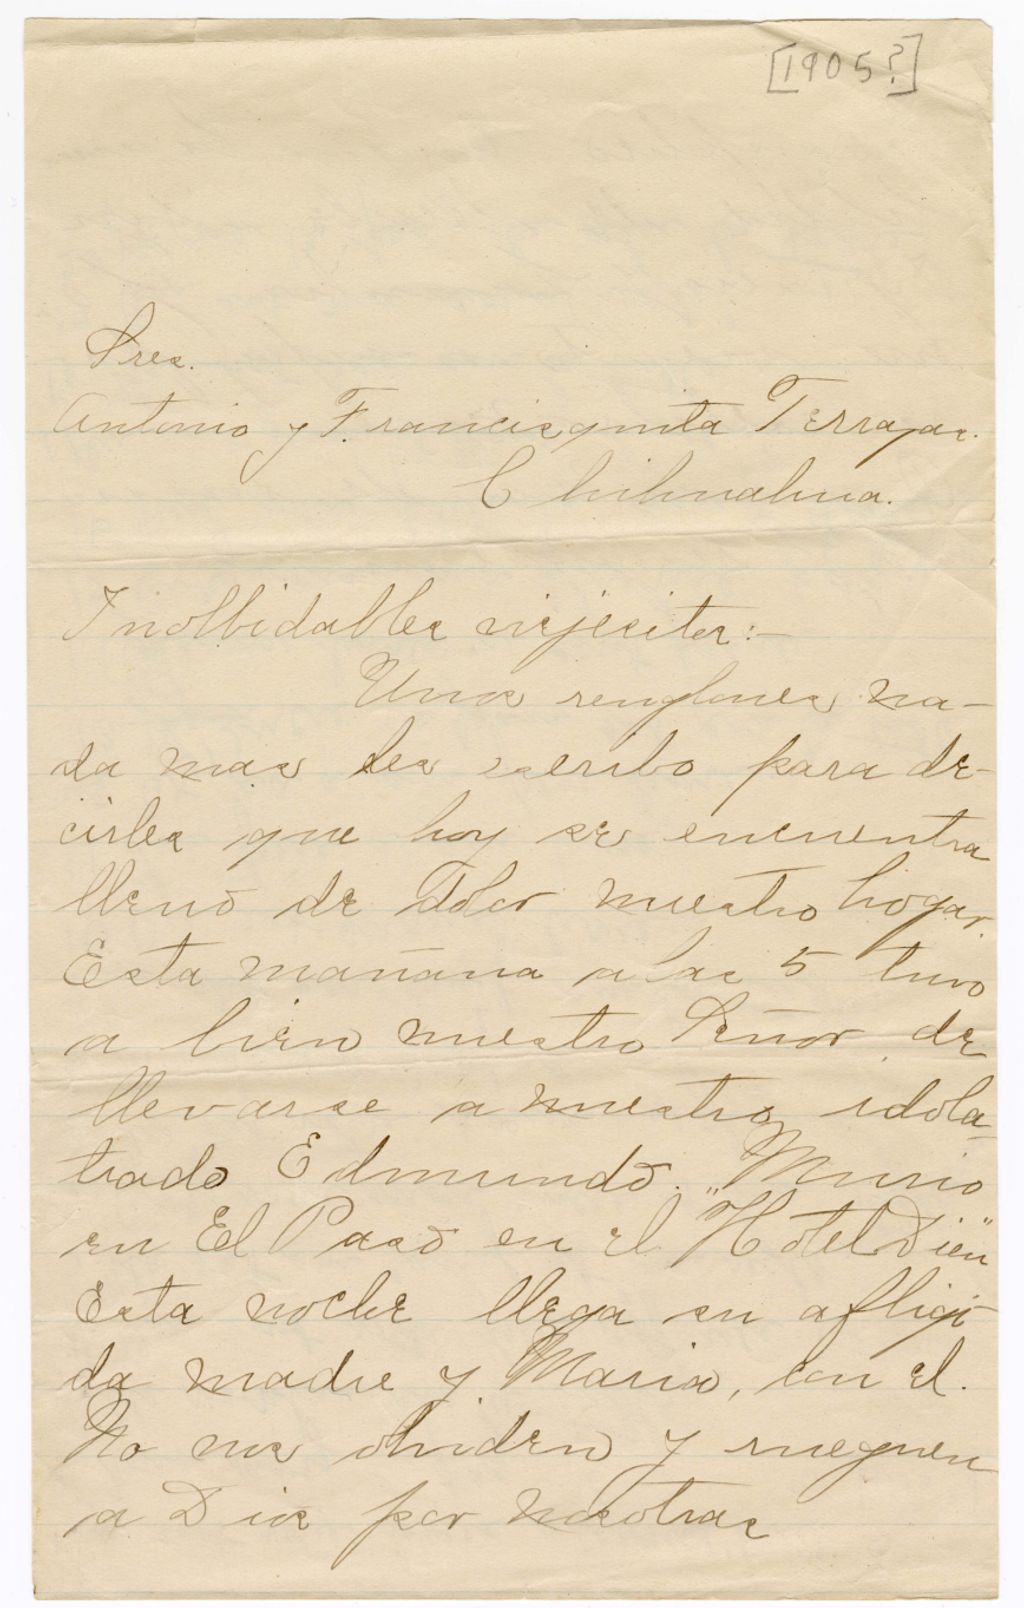 [1905?]
Sres.
Antonio y Francisquita Terrazas.
Chihuahua.
Inolbidables viejesitos:-
Unos renglones na-
da mas les escribo para de-
cirles que hoy se encuentra
lleno de dolor nuestro hogar.
Esta mañana a las 5 tuvo
a bien nuestro Señor de
llevarse a nuestro idola-
trado Edmundo. Murio
en El Paso en el "Hotel Dieu"
Esta noche llega su afligi-
da madre y Maria, con el.
No nos olviden y rueguen
a Dios por nosotras